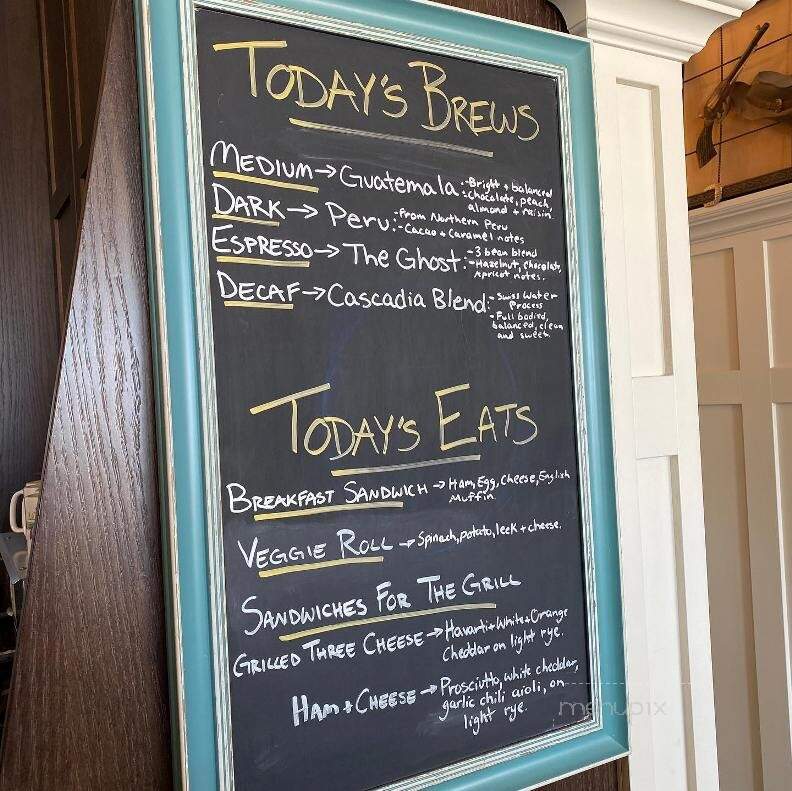 TODAY'S BREWS
MEDIUM → Guatemala :- Bright + balanced
: chocolate, peach,
almond + raisin
DARK → Peru :- From Northern Peru
:- Cacao + Caramel notes
ESPRESSO → The Ghost :- 3 bean blend
:- Hazelnut, Chocolate,
Apricot notes.
DECAF → Cascadia Blend :- Swiss Water
Process
- Full bodied,
balanced, clean
and sweet
TODAY'S EATS
BREAKFAST SANDWICH → Ham, Egg, Cheese, English
Muffin
VEGGIE ROLL → Spinach, potato, leek + cheese.
SANDWICHES FOR THE GRILL
GRILLED THREE CHEESE → Havarti + White + Orange
Cheddar on light rye.
HAM + CHEESE → Prosciutto, white cheddar,
garlic chili aioli, on
light rye.
menupix